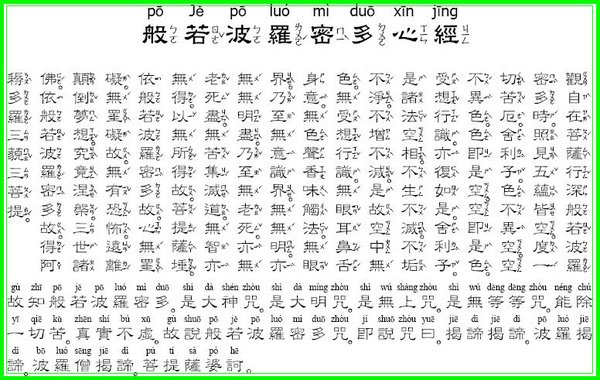 pō Jě pō luó mì duō xīn jīng
般若波羅密多心經
觀自在菩薩行深般若波羅
密多時照見五蘊皆空度一
切苦厄。舍利子色不異空。空
不異色。色即是空。空即是色。
受想行識亦復如是。舍利子
是諸法空相。不生不滅不垢
不淨不增不減。是故空中無
色。無受想行識。無眼耳鼻舌
身意。無色聲香味觸法。無眼
界乃至無意識界。無無明亦
無無明盡。乃至無老死亦無
老死盡。無苦集滅道。無智亦
無得。以無所得故。菩提薩埵
依般若波羅密多故。心無罣
礙。無罣礙故。無有恐怖。遠離
顛倒夢想。究竟涅槃。三世諸
佛依般若波羅密多故。得阿
耨多羅三藐三菩提。
gù zhī pō jě pō luó mì duō shì dà shén zhòu shì dà míng zhòu shì wú shàng zhòu shì wú děng děng zhòu néng chú
故知般若波羅密多。是大神咒。是大明咒。是無上咒。是無等等咒。能除
yī qiē kǔ zhēn shí bù xū gù shuō pō jě pō luó mì duō zhòu jí shuō zhòu yuē jiē dì jiē dì pō luó jiē
一切苦。真實不虛。故說般若波羅密多咒。即說咒曰。揭諦揭諦。波羅揭
dì bō luó sēng jiē dì pú tí sà pó hē
諦。波羅僧揭諦。菩提薩婆訶。